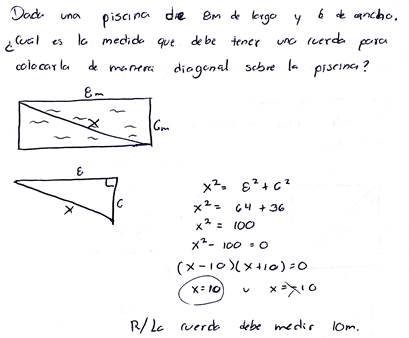 Dada una piscina de 8m de largo y 6 de ancho.
¿Cuál es la medida que debe tener una cuerda para
colocarla de manera diagonal sobre la piscina?
8m
x
6m
8
x
6
x² = 8² + 6²
x² = 64 + 36
x² = 100
x² - 100 = 0
(x - 10)(x + 10) = 0
x = 10 u x = -10
R/ La cuerda debe medir 10m.